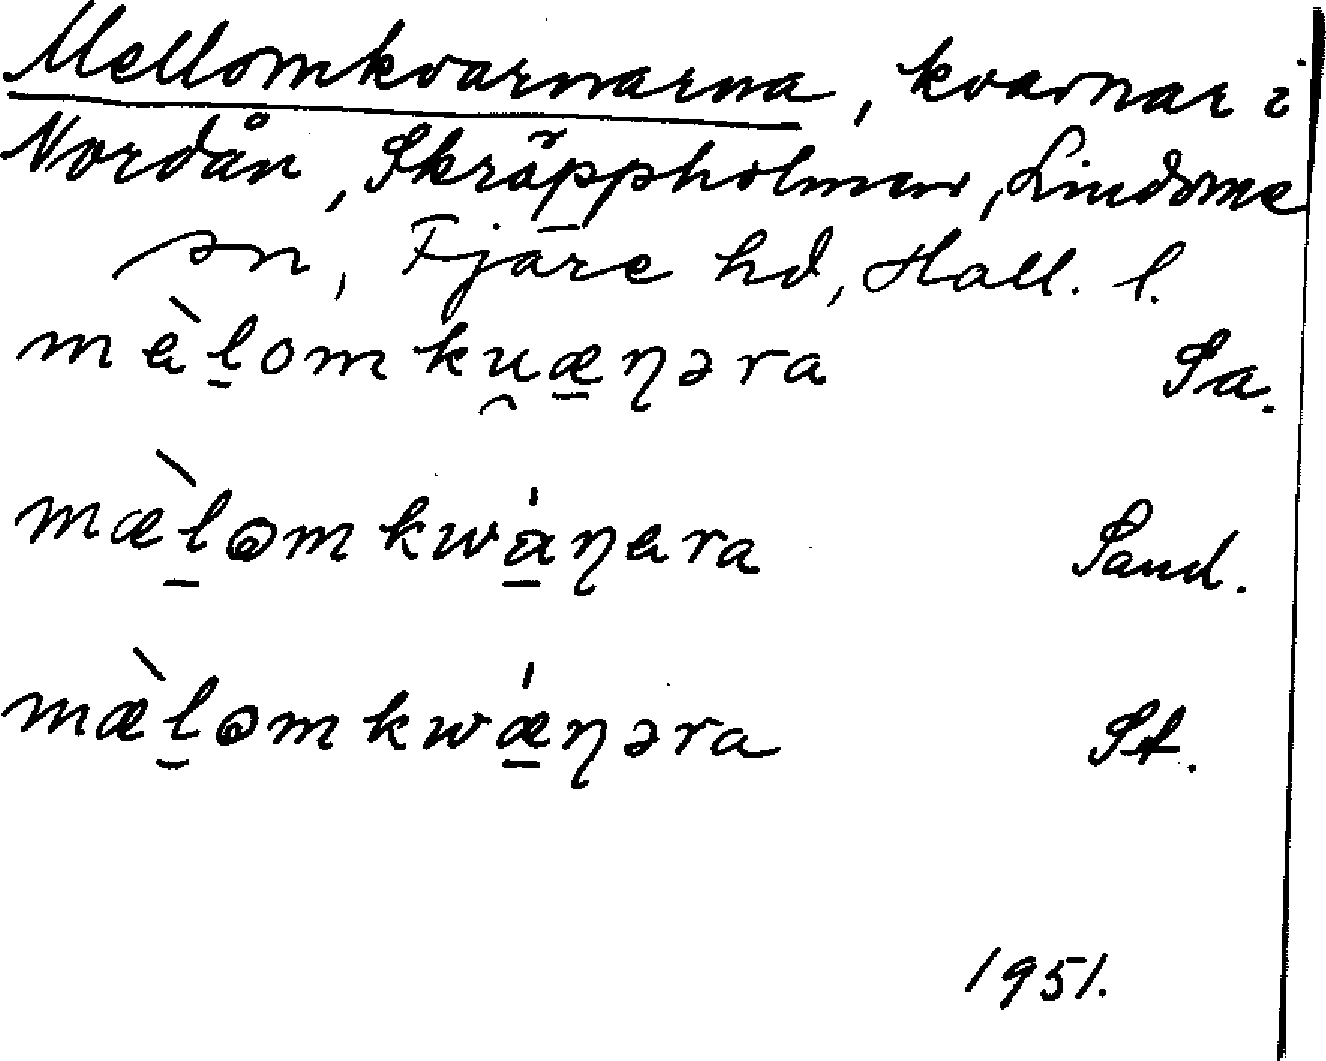 Mellomkvarnarna, kvarnar i
Nordån, Skräppholmen, Lindome
sn, Fjäre hd, Hall. l.
mè̠lomku̯æ̠ɳəra Sa.
mæ̀l̠ɷmkwá̠ɳera Sand.
mæ̀l̠ɷmkwǽ̠ɳəra St.
1951.